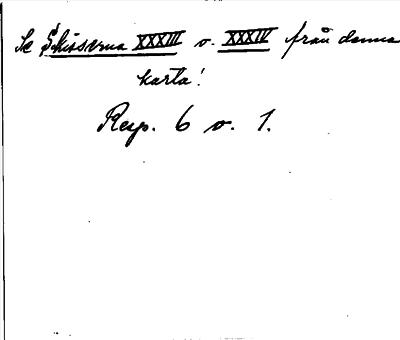 Se Skisserna XXXIII o. XXXIV från denna
karta!
Resp. 6 o. 1.